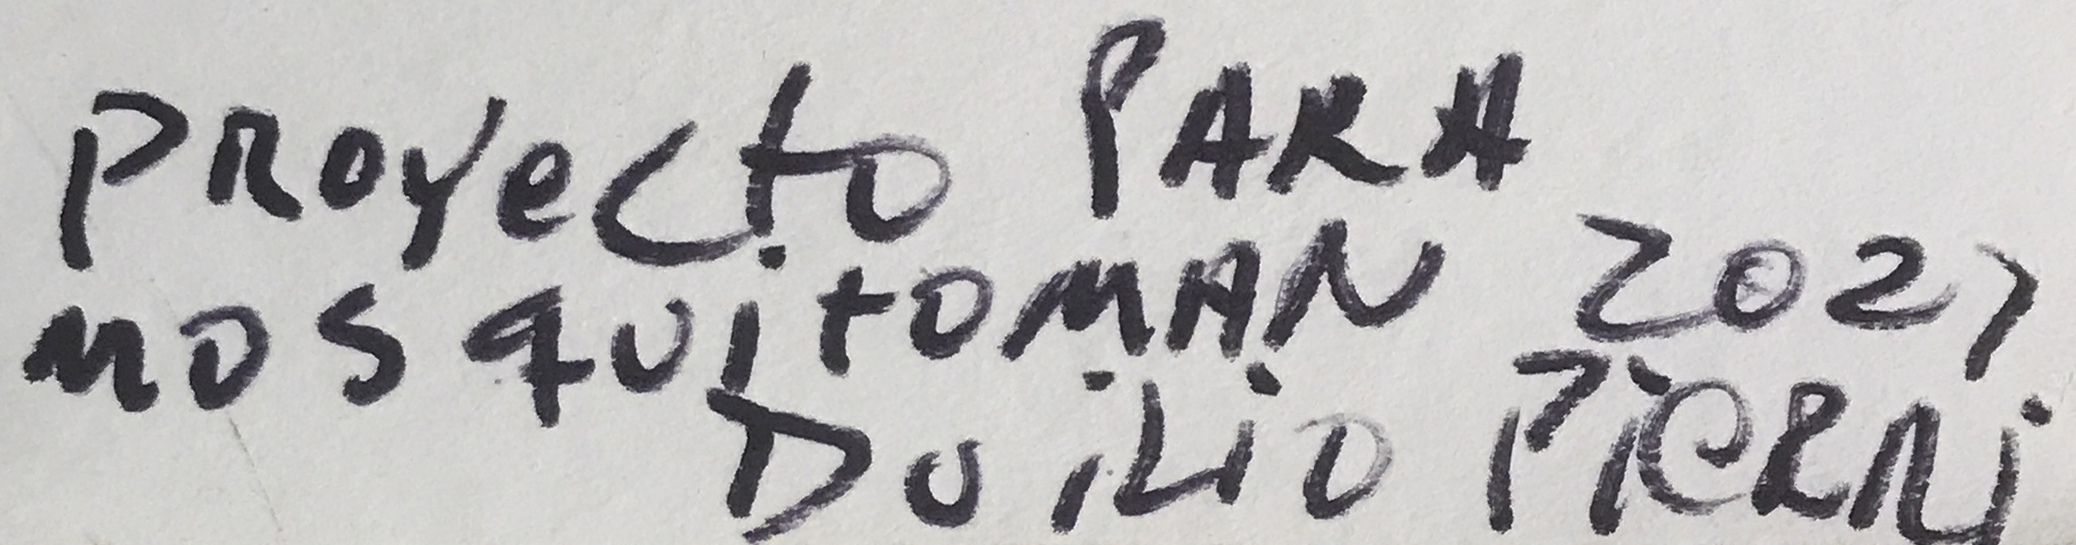 PROYecto PARA
mosquitoMAN
DuiLio PieRRi